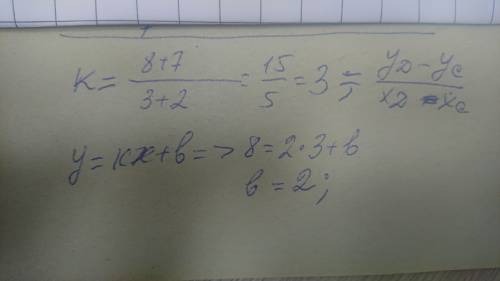 K = (8+7)/(3+2) = 15/5 = 3 = (yD - yC)/(xD - xC)
y = kx + b => 8 = 2·3 + b
b = 2;